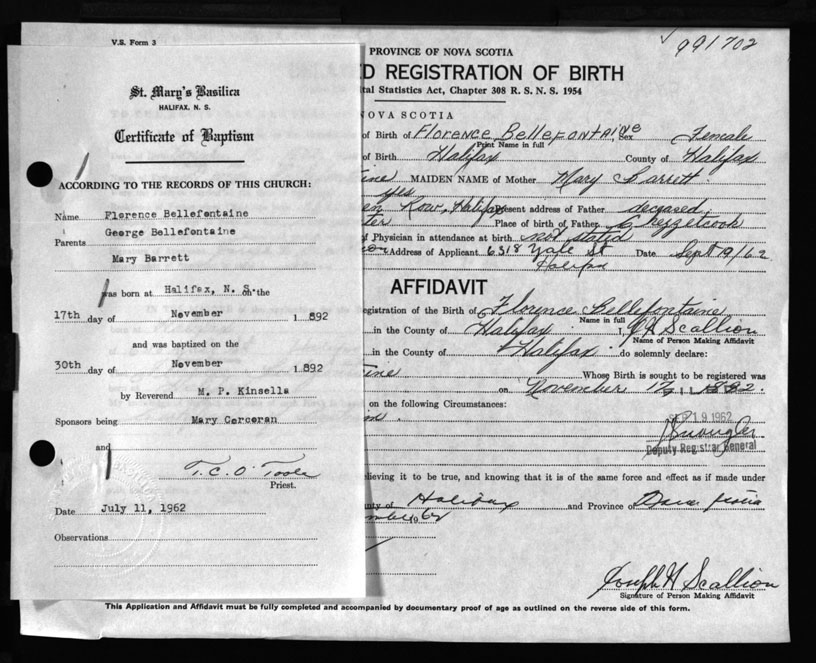 V.S. Form 3
St. Mary's Basilica
HALIFAX, N. S.
Certificate of Baptism
ACCORDING TO THE RECORDS OF THIS CHURCH:
Name Florence Bellefontaine
George Bellefontaine
Parents
Mary Barrett
was born at Halifax, N. S. on the
17th day of November 1892
and was baptized on the
30th day of November 1892
by Reverend M. P. Kinsella
Sponsors being Mary Corcoran
and
T. C. O'Toole
Priest.
Date July 11, 1962
Observations
991702
PROVINCE OF NOVA SCOTIA
D REGISTRATION OF BIRTH
tal Statistics Act, Chapter 308 R. S. N. S. 1954
NOVA SCOTIA
of Birth of Florence Bellefontaine Sex Female
Print Name in full
of Birth Halifax County of Halifax
ine MAIDEN NAME of Mother Mary Barrett
yes
Row, Halifax Present address of Father deceased
ter Place of birth of Father Chezzetcook
f Physician in attendance at birth not stated
Address of Applicant 6318 Yale St Date Sept 19/62
Halifax
AFFIDAVIT
egistration of the Birth of Florence Bellefontaine
Name in full
in the County of Halifax I, J H Scallion
Name of Person Making Affidavit
in the County of Halifax do solemnly declare:
ine Whose Birth is sought to be registered was
on November 17, 1892.
on the following Circumstances:
SEP 19 1962
Deputy Registrar General
elieving it to be true, and knowing that it is of the same force and effect as if made under
nty of Halifax and Province of Nova Scotia
mber 1962
Joseph H Scallion
Signature of Person Making Affidavit
This Application and Affidavit must be fully completed and accompanied by documentary proof of age as outlined on the reverse side of this form.